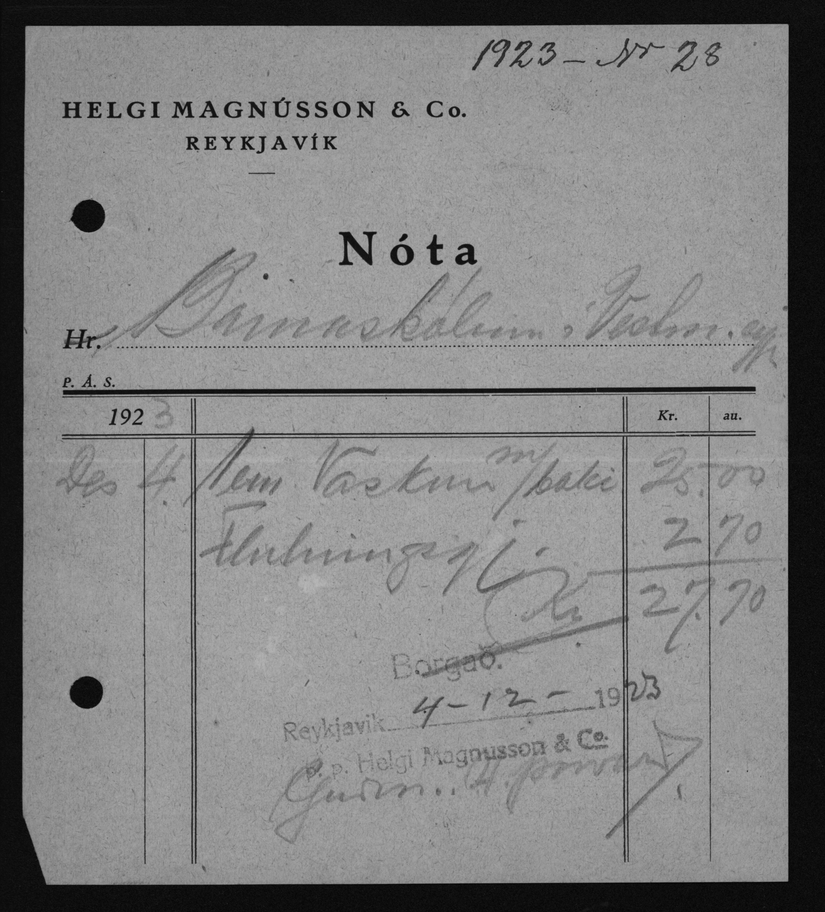 1923 – Nr 28
HELGI MAGNÚSSON & Co.
REYKJAVÍK
Nóta
Hr. Barnaskólinn í Vestm.eyj.
P. Á. S.
1923 Kr. au.
Des 4. 1 em. Vaskur m/baki 25.00
Flutningsgj. 2 70
Kr 27.70
Borgað.
Reykjavík 4-12- 1923
p. p. Helgi Magnusson & Co.
Guðm. H.